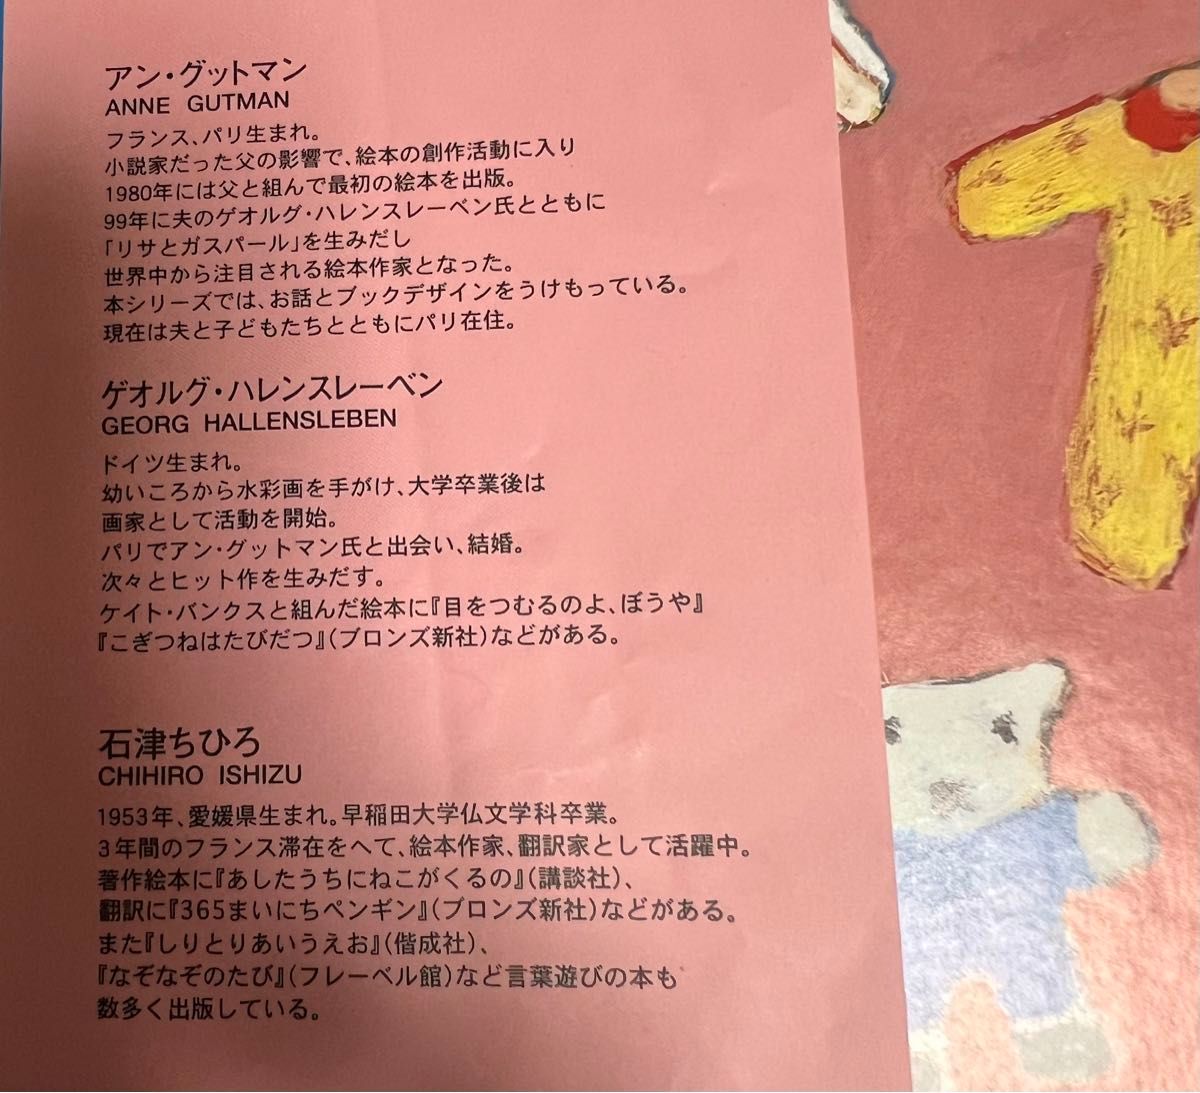 アン・グットマン
ANNE GUTMAN
フランス、パリ生まれ。
小説家だった父の影響で、絵本の創作活動に入り
1980年には父と組んで最初の絵本を出版。
99年に夫のゲオルグ・ハレンスレーベン氏とともに
「リサとガスパール」を生みだし
世界中から注目される絵本作家となった。
本シリーズでは、お話とブックデザインをうけもっている。
現在は夫と子どもたちとともにパリ在住。
ゲオルグ・ハレンスレーベン
GEORG HALLENSLEBEN
ドイツ生まれ。
幼いころから水彩画を手がけ、大学卒業後は
画家として活動を開始。
パリでアン・グットマン氏と出会い、結婚。
次々とヒット作を生みだす。
ケイト・バンクスと組んだ絵本に『目をつむるのよ、ぼうや』
『こぎつねはたびだつ』(ブロンズ新社)などがある。
石津ちひろ
CHIHIRO ISHIZU
1953年、愛媛県生まれ。早稲田大学仏文学科卒業。
3年間のフランス滞在をへて、絵本作家、翻訳家として活躍中。
著作絵本に『あしたうちにねこがくるの』(講談社)、
翻訳に『365まいにちペンギン』(ブロンズ新社)などがある。
また『しりとりあいうえお』(偕成社)、
『なぞなぞのたび』(フレーベル館)など言葉遊びの本も
数多く出版している。